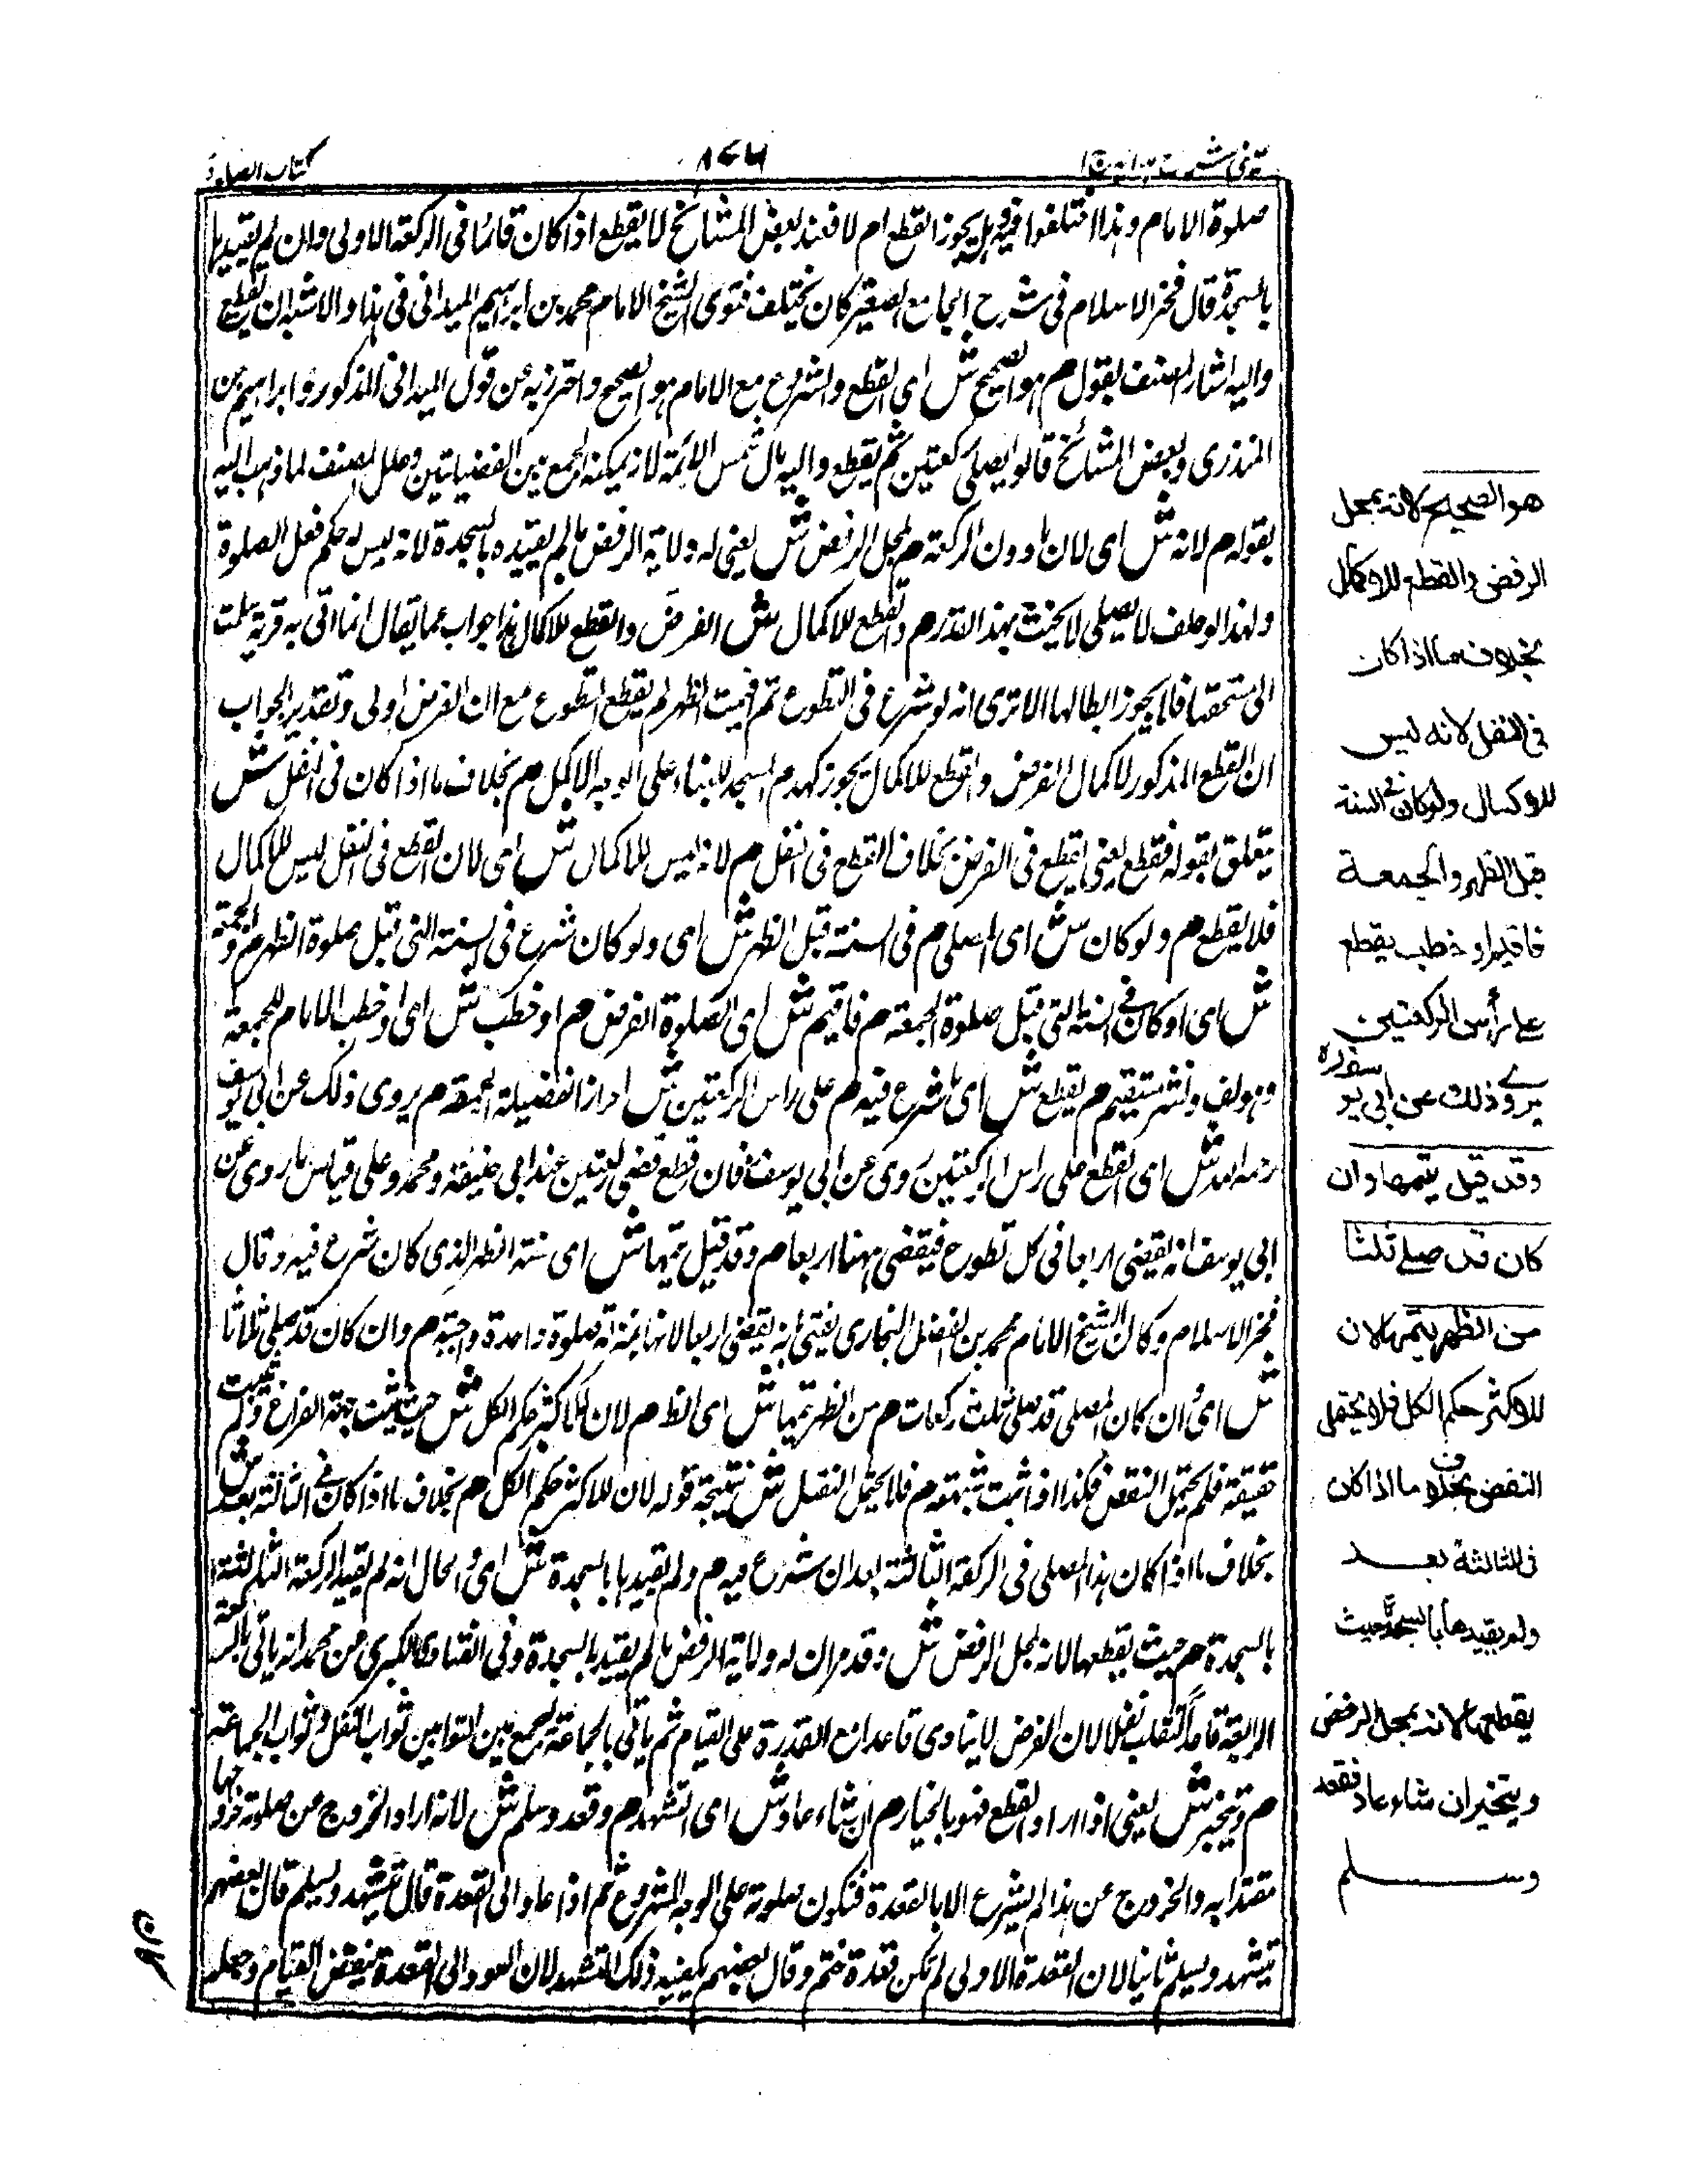 كتاب الصلوة
٨٧٦
عينى شرح هدايه ج ا
صلوة الامام وهذا اختلفوا فيه هل يجوز القطع ام لا فعند بعض المشائخ لا يقطع اذا كان قائما فى الركعة الاولى وان لم يقيدها
بالسجدة قال فخر الاسلام فى شرح الجامع الصغير كان يختلف فتوى الشيخ الامام محمد بن ابراهيم الميدانى فى هذا والاشبه ان يقطع
واليه اشار المصنف بقوله م هو الصحيح ش اى القطع والشروع مع الامام هو الصحيح واحترز به عن قول الميدانى المذكور وابراهيم بن
المنذرى وبعض المشائخ قالوا يصلى ركعتين ثم يقطع واليه مال شمس الائمة لانه يمكنه الجمع بين الفضيلتين وعلل المصنف لما ذهب اليه
بقوله م لانه ش اى لان ما دون الركعة م بمحل الرفض ش يعنى له ولاية الرفض ما لم يقيده بالسجدة لانه ليس له حكم فعل الصلوة
ولهذا لو حلف لا يصلى لا يحنث بهذا القدر م والقطع للاكمال ش الفرض والقطع للاكمال هذا جواب عما يقال انما اتى به قربة سلمت
الى مستحقها فلا يجوز ابطالها الا ترى انه لو شرع فى التطوع ثم اقيمت الظهر لم يقطع التطوع مع ان الفرض اولى وتقدير الجواب
ان القطع المذكور لاكمال الفرض والقطع للاكمال يجوز كهدم المسجد للبناء على الوجه الاكمل م بخلاف ما اذا كان فى النفل ش
يتعلق بقوله فقطع يعنى يقطع فى الفرض بخلاف القطع فى النفل م لانه ليس للاكمال ش اى لان القطع فى النفل ليس للاكمال
فلا يقطع م ولو كان ش اى المصلى م فى السنة قبل الظهر ش اى ولو كان شرع فى السنة التى قبل صلوة الظهر م والجمعة
ش اى او كان فى السنة التى قبل صلوة الجمعة م فاقيم ش اى الصلوة الفرض م او خطب ش اى او خطب الامام للجمعة
وهو لف ونشر مستقيم م يقطع ش اى ما شرع فيه م على راس الركعتين ش احرازا لفضيلة الجمعة م يروى ذلك عن ابى يوسف
رحمه الله ش اى القطع على راس الركعتين روى عن ابى يوسف فان قطع قضى ركعتين عند ابى حنيفة ومحمد وعلى قياس ما روى عن
ابى يوسف انه يقضى اربعا فى كل تطوع فيقضى ههنا اربعا م وقد قيل يتمها ش اى سنة الظهر الذى كان شرع فيه وقال
فخر الاسلام وكان الشيخ الامام محمد بن الفضل البخارى يفتى بانه يقضى اربعا لانها بمنزلة صلوة واحدة واجبة م وان كان قد صلى ثلاثا
ش اى وان كان المصلى قد صلى ثلث ركعات م من الظهر يتمها ش اى الظهر م لان للاكثر حكم الكل ش حيث يثبت شبهة الفراغ ولو ثبت
حقيقة فلم يحتمل النقض فكذا اذا ثبت شبهته م فلا يحتمل النقض ش نتيجة قوله لان للاكثر حكم الكل م بخلاف ما اذا كان فى الثالثة بعد ش
بخلاف ما اذا كان هذا المصلى فى الركعة الثالثة بعد ان شرع فيه م ولم يقيدها بالسجدة ش اى والحال انه لم يقيد الركعة الثالثة
بالسجدة م حيث يقطعها لانه بمحل الرفض ش وقد مر ان له ولاية الرفض ما لم يقيد بالسجدة وفى الفتاوى الكبرى عن محمد انه ياتى بالركعة
الرابعة قاعدا لتنقلب نفلا لان الفرض لا يتادى قاعدا مع القدرة على القيام ثم ياتى بالجماعة ليجمع بين الثوابين ثواب النفل وثواب الجماعة
م ويتخير ش يعنى اذا اراد القطع فهو بالخيار م ان شاء عاد ش اى التشهد م وقعد وسلم ش لانه اراد الخروج عن صلوته خروجها
معتدا به والخروج عن هذا لم يشرع الا بالقعدة فتكون صلوته على الوجه المشروع ثم اذا عاد الى القعدة قال يتشهد ويسلم قال بعضهم
يتشهد ويسلم ثانيا لان القعدة الاولى لم تكن قعدة ختم وقال بعضهم يكفيه ذلك التشهد لان العود الى القعدة ينقض القيام وجعله
هو الصحيح لانه بمحل
الرفض والقطع للاكمال
بخلاف ما اذا كان
فى النفل لانه ليس
للاكمال ولو كان فى السنة
قبل الظهر والجمعة
فاقيم او خطب يقطع
على رأس الركعتين
يروى ذلك عن ابى يوسف ره
وقد قيل يتمها وان
كان قد صلى ثلثا
من الظهر يتمها لان
للاكثر حكم الكل فلا يحتمل
النقض بخلاف ما اذا كان
فى الثالثة بعد
ولم يقيدها بالسجدة حيث
يقطعها لانه بمحل الرفض
ويتخير ان شاء عاد فقعد
وسلم